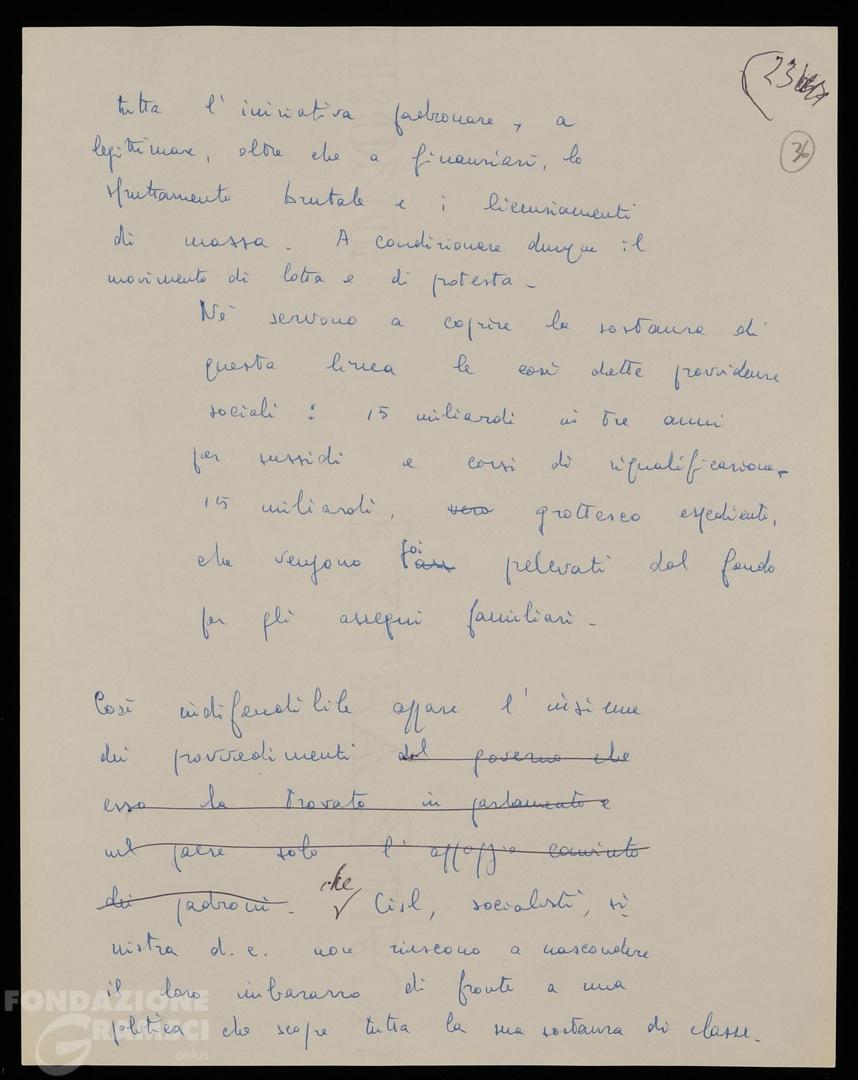 23
36
tutta l'iniziativa padronare, a
legittimare, oltre che a finanziari, lo
sfruttamento brutale e i licenziamenti
di massa. A condizionare dunque il
movimento di lotta e di protesta.
Nè servono a coprire la sostanza di
questa linea le così dette provvidenze
sociali: 15 miliardi in tre anni
per sussidi e corsi di riqualificazione.
15 miliardi, vero grottesco espediente,
che vengono poi prelevati dal fondo
per gli assegni familiari.
Così indifendibile appare l'insieme
dei provvedimenti del governo che
esso ha trovato in parlamento e
nel paese solo l'appoggio convinto
dei padroni. che Cisl, socialisti, si
nistra d.c. non riescono a nascondere
il loro imbarazzo di fronte a una
politica che scopre tutta la sua sostanza di classe.
FONDAZIONE
GRAMSCI
onlus